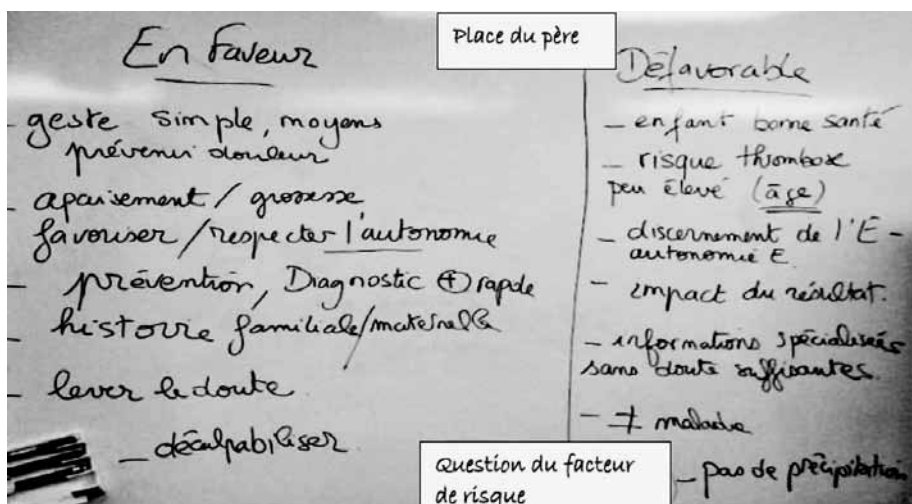 Place du père
En faveur
- geste simple, moyens
prévenir douleur
- apaisement / grossesse
favoriser / respecter l'autonomie
- prévention, Diagnostic ⊕ rapide
- histoire familiale/maternelle
- lever le doute
- déculpabiliser
Défavorable
- enfant bonne santé
- risque thrombose
peu élevé (âge)
- discernement de l'E -
autonomie E
- impact du résultat.
- informations spécialisées
sans doute suffisantes.
- ≠ maladie
- pas de précipitation
Question du facteur
de risque